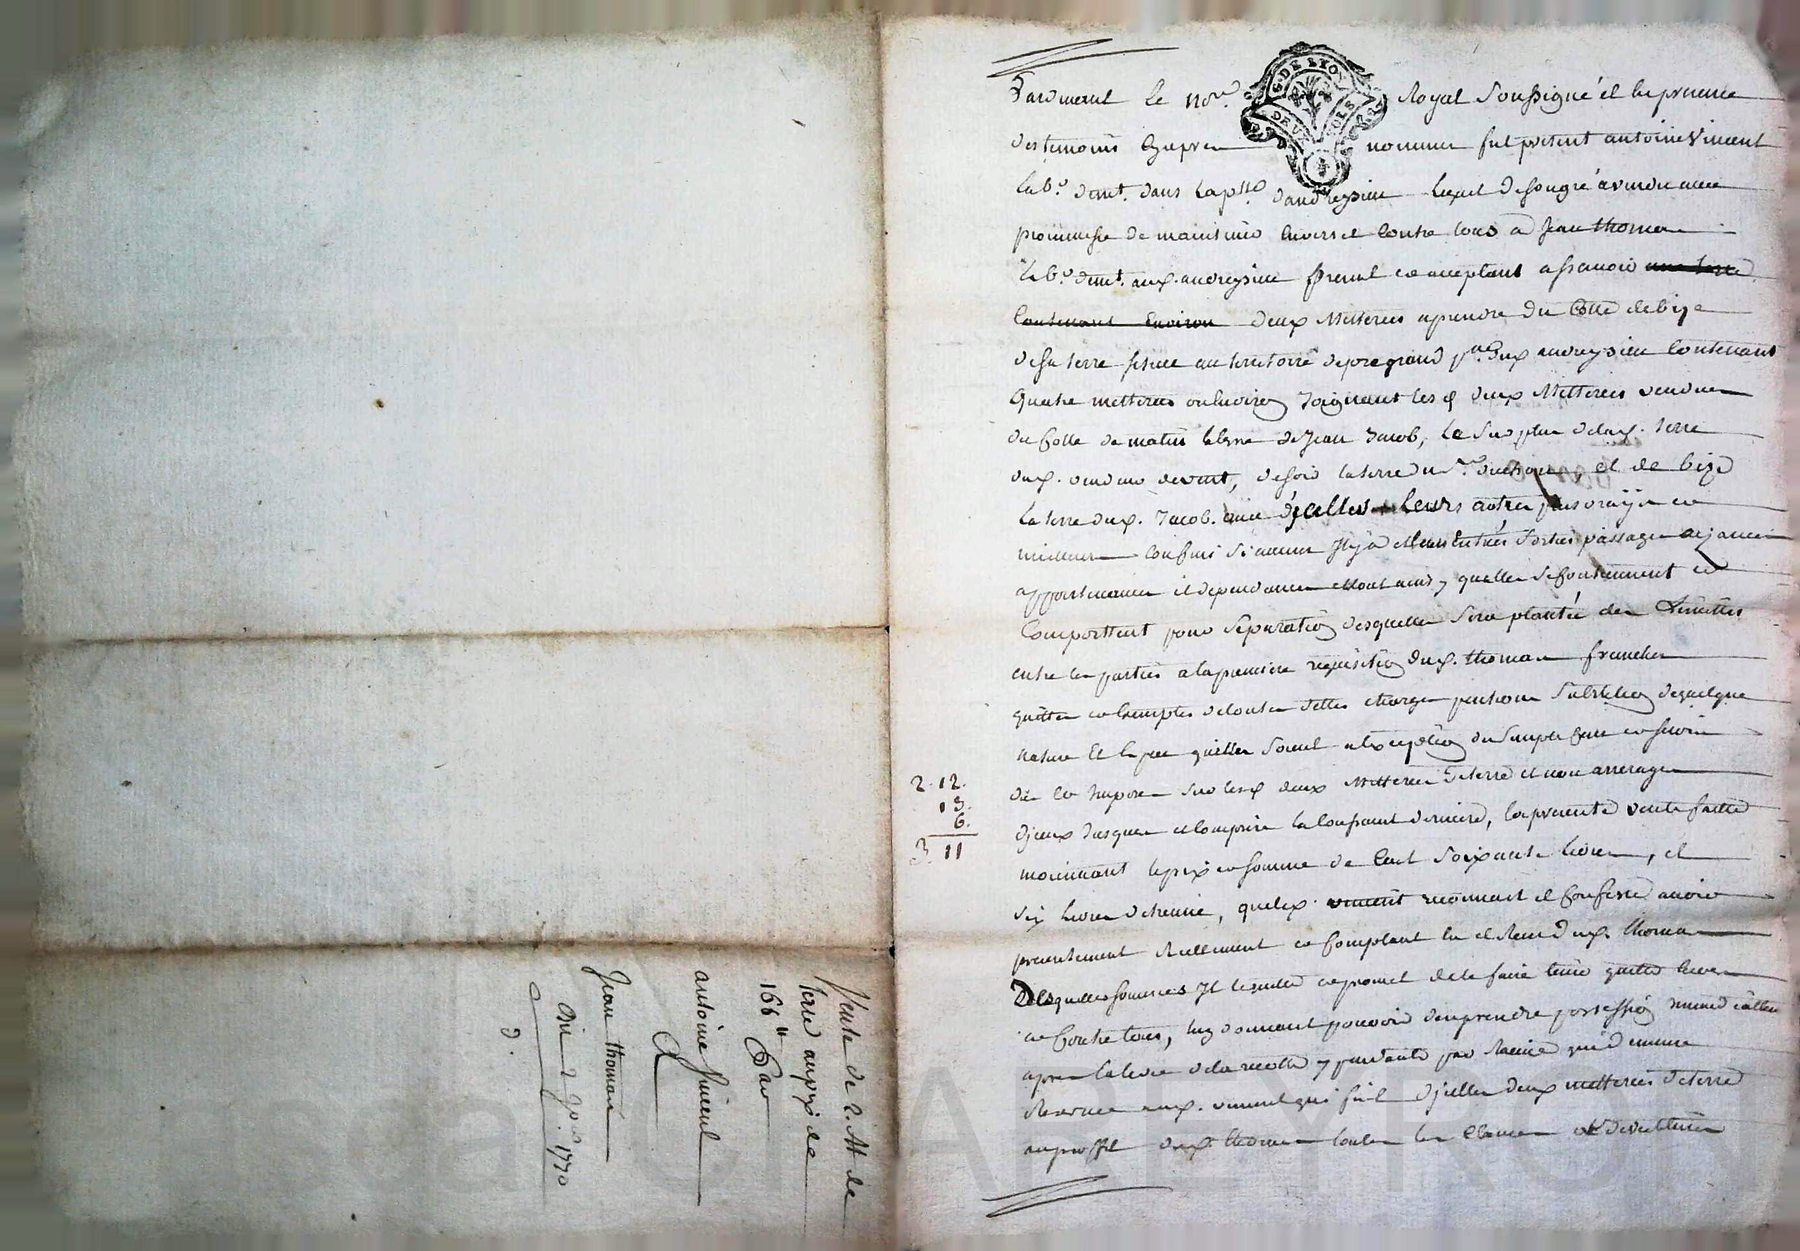 Pardevant le no.re Royal soussigné et en presence
des temoins cy apres nommes fut present antoine Vincent
lab.r dem.t dans la p.sse d'andrezieu lequel de son gré a vendu avec
promesse de maintenir envers et contre tous a Jean thomas
lab.r dem.t aux. andrezieu present et acceptant assavoir une terre
contenant environ deux metterées a prendre du cotté de bize
de sa terre scituée au territoire de pregrand p.sse dux andrezieu contenant
quatre metterées ou environ Joignant les d deux Metterées vendues
du cotté de matin terre de Jean Jacob, le surplus de lad. terre
dud. vendeur de vent, de soir la terre du s.r et de bize
la terre dud. Jacob. avec d'jcelles leurs autres plus vrays et
meilleurs confins si aucuns Il y a et leurs entrées sorties passages aizances
appartenances et dependances et tout ainsy quelles se contiennent et
Comporttent pour séparation desquelles sera planté des Limittes
entre les parties a la premiere requisition dud. thomas franches
quittes et exemptes de toutes dettes charges pensions substitution de quelque
nature et espece quelles soient a l'exception du simple cens et servis
du et imposé sur lesd deux Metterées de terre et non arrerages
d'jceux Jusques et compris la courant derniere, la presente vente faitte
moiennant le prix et somme de cent soixante livres, et
six livres d'etrenne, que led. vincent reconnait et confesse avoir
presentement reellement et comptant eu et receu dud. thomas
Desquelles sommes Il le quitte et promet de le faire tenir quitte envers
et contre tous, luy donnant pouvoir d'en prendre possession
apres la levée de la recolte y pendante par racine
Reservée aud. vincent qui fait d'jcelles deux metterées de terre
au proffit dud. thomas toutes les clauses
G. DE LYON
DEUX SOLS
2. 12.
13.
6.
3. 11
Vente de 2. M de
terre au prix de
166 ₶ Par
antoine Vincent
A
Jean thomas
Du 2 9bre. 1770